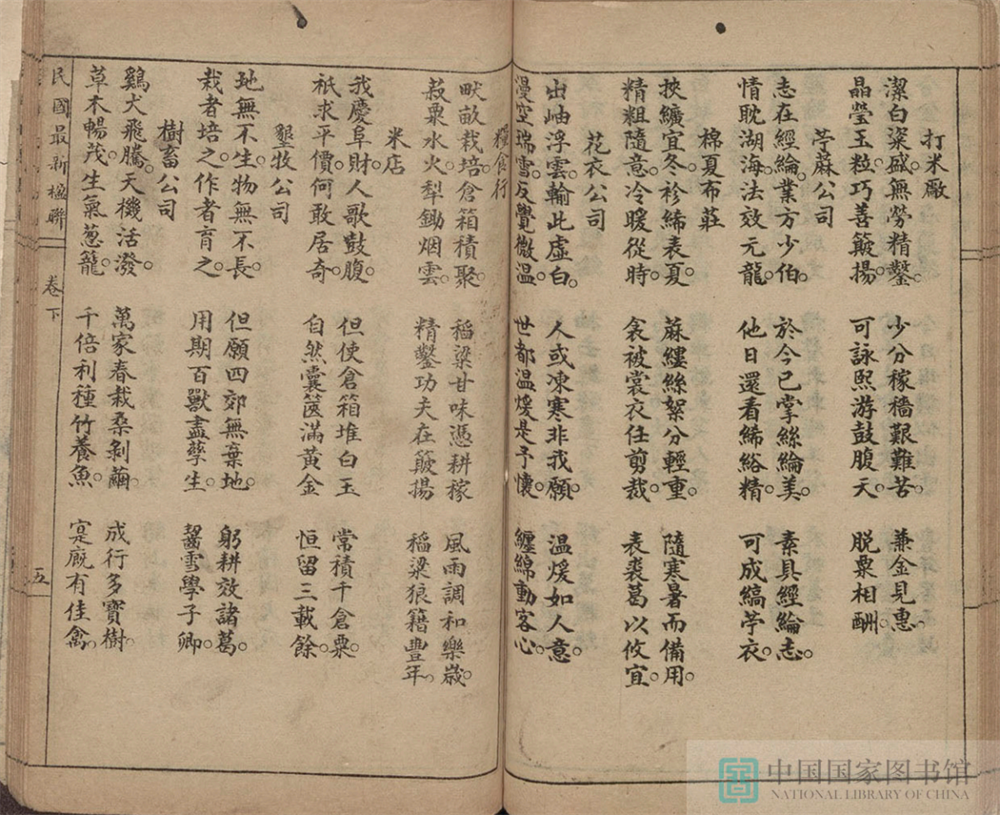 打米廠
潔白粢盛。無勞精鑿。 少分稼穡艱難苦。 兼金見惠。
晶瑩玉粒。巧善簸揚。 可詠熙游鼓腹天。 脱粟相酬。
苧蔴公司
志在經綸。業方少伯。 於今已掌絲綸美。 素具經綸志。
情耽湖海。法效元龍。 他日還看絺綌精。 可成縞苧衣。
棉夏布莊
挾纊宜冬。衫絺表夏。 蔴縷絲絮分輕重。 隨寒暑而備用。
精粗隨意。冷暖從時。 衾被裳衣任剪裁。 表裘葛以攸宜。
花衣公司
出岫浮雲。輸此虛白。 人或凍寒非我願。 温煖如人意。
漫空瑞雪。反覺微温。 世都温煖是予懷。 纏綿動客心。
糧食行
畎畝栽培。倉箱積聚。 稻粱甘味憑耕稼 風雨調和樂歲。
菽粟水火。犁鋤烟雲。 精鑿功夫在簸揚 稻粱狼籍豐年。
米店
我慶阜財。人歌鼓腹。 但使倉箱堆白玉 常積千倉粟。
祇求平價。何敢居奇。 自然囊篋滿黄金 恒留三載餘。
墾牧公司
地無不生。物無不長。 但願四郊無棄地。 躬耕效諸葛。
栽者培之。作者育之。 用期百獸盡孳生。 齧雪學子卿。
樹畜公司
鷄犬飛騰。天機活潑。 萬家春栽桑剝繭。 成行多寶樹。
草木暢茂。生氣葱籠。 千倍利種竹養魚。 寔廐有佳禽。
民國最新楹聯 卷下 五
中国国家图书馆
NATIONAL LIBRARY OF CHINA